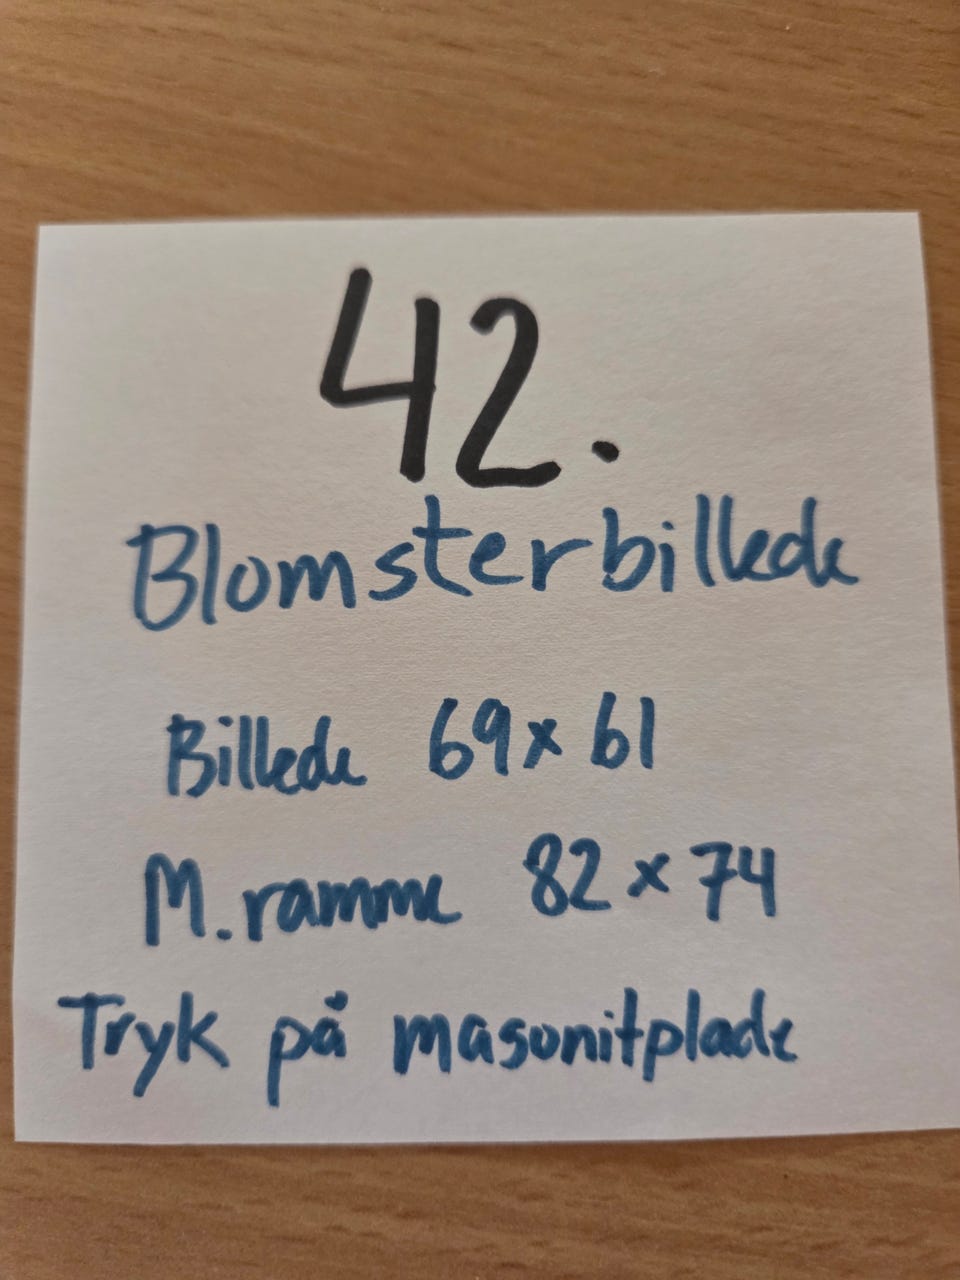 42.
Blomsterbillede
Billede 69 x 61
M. ramme 82 x 74
Tryk på masonitplade